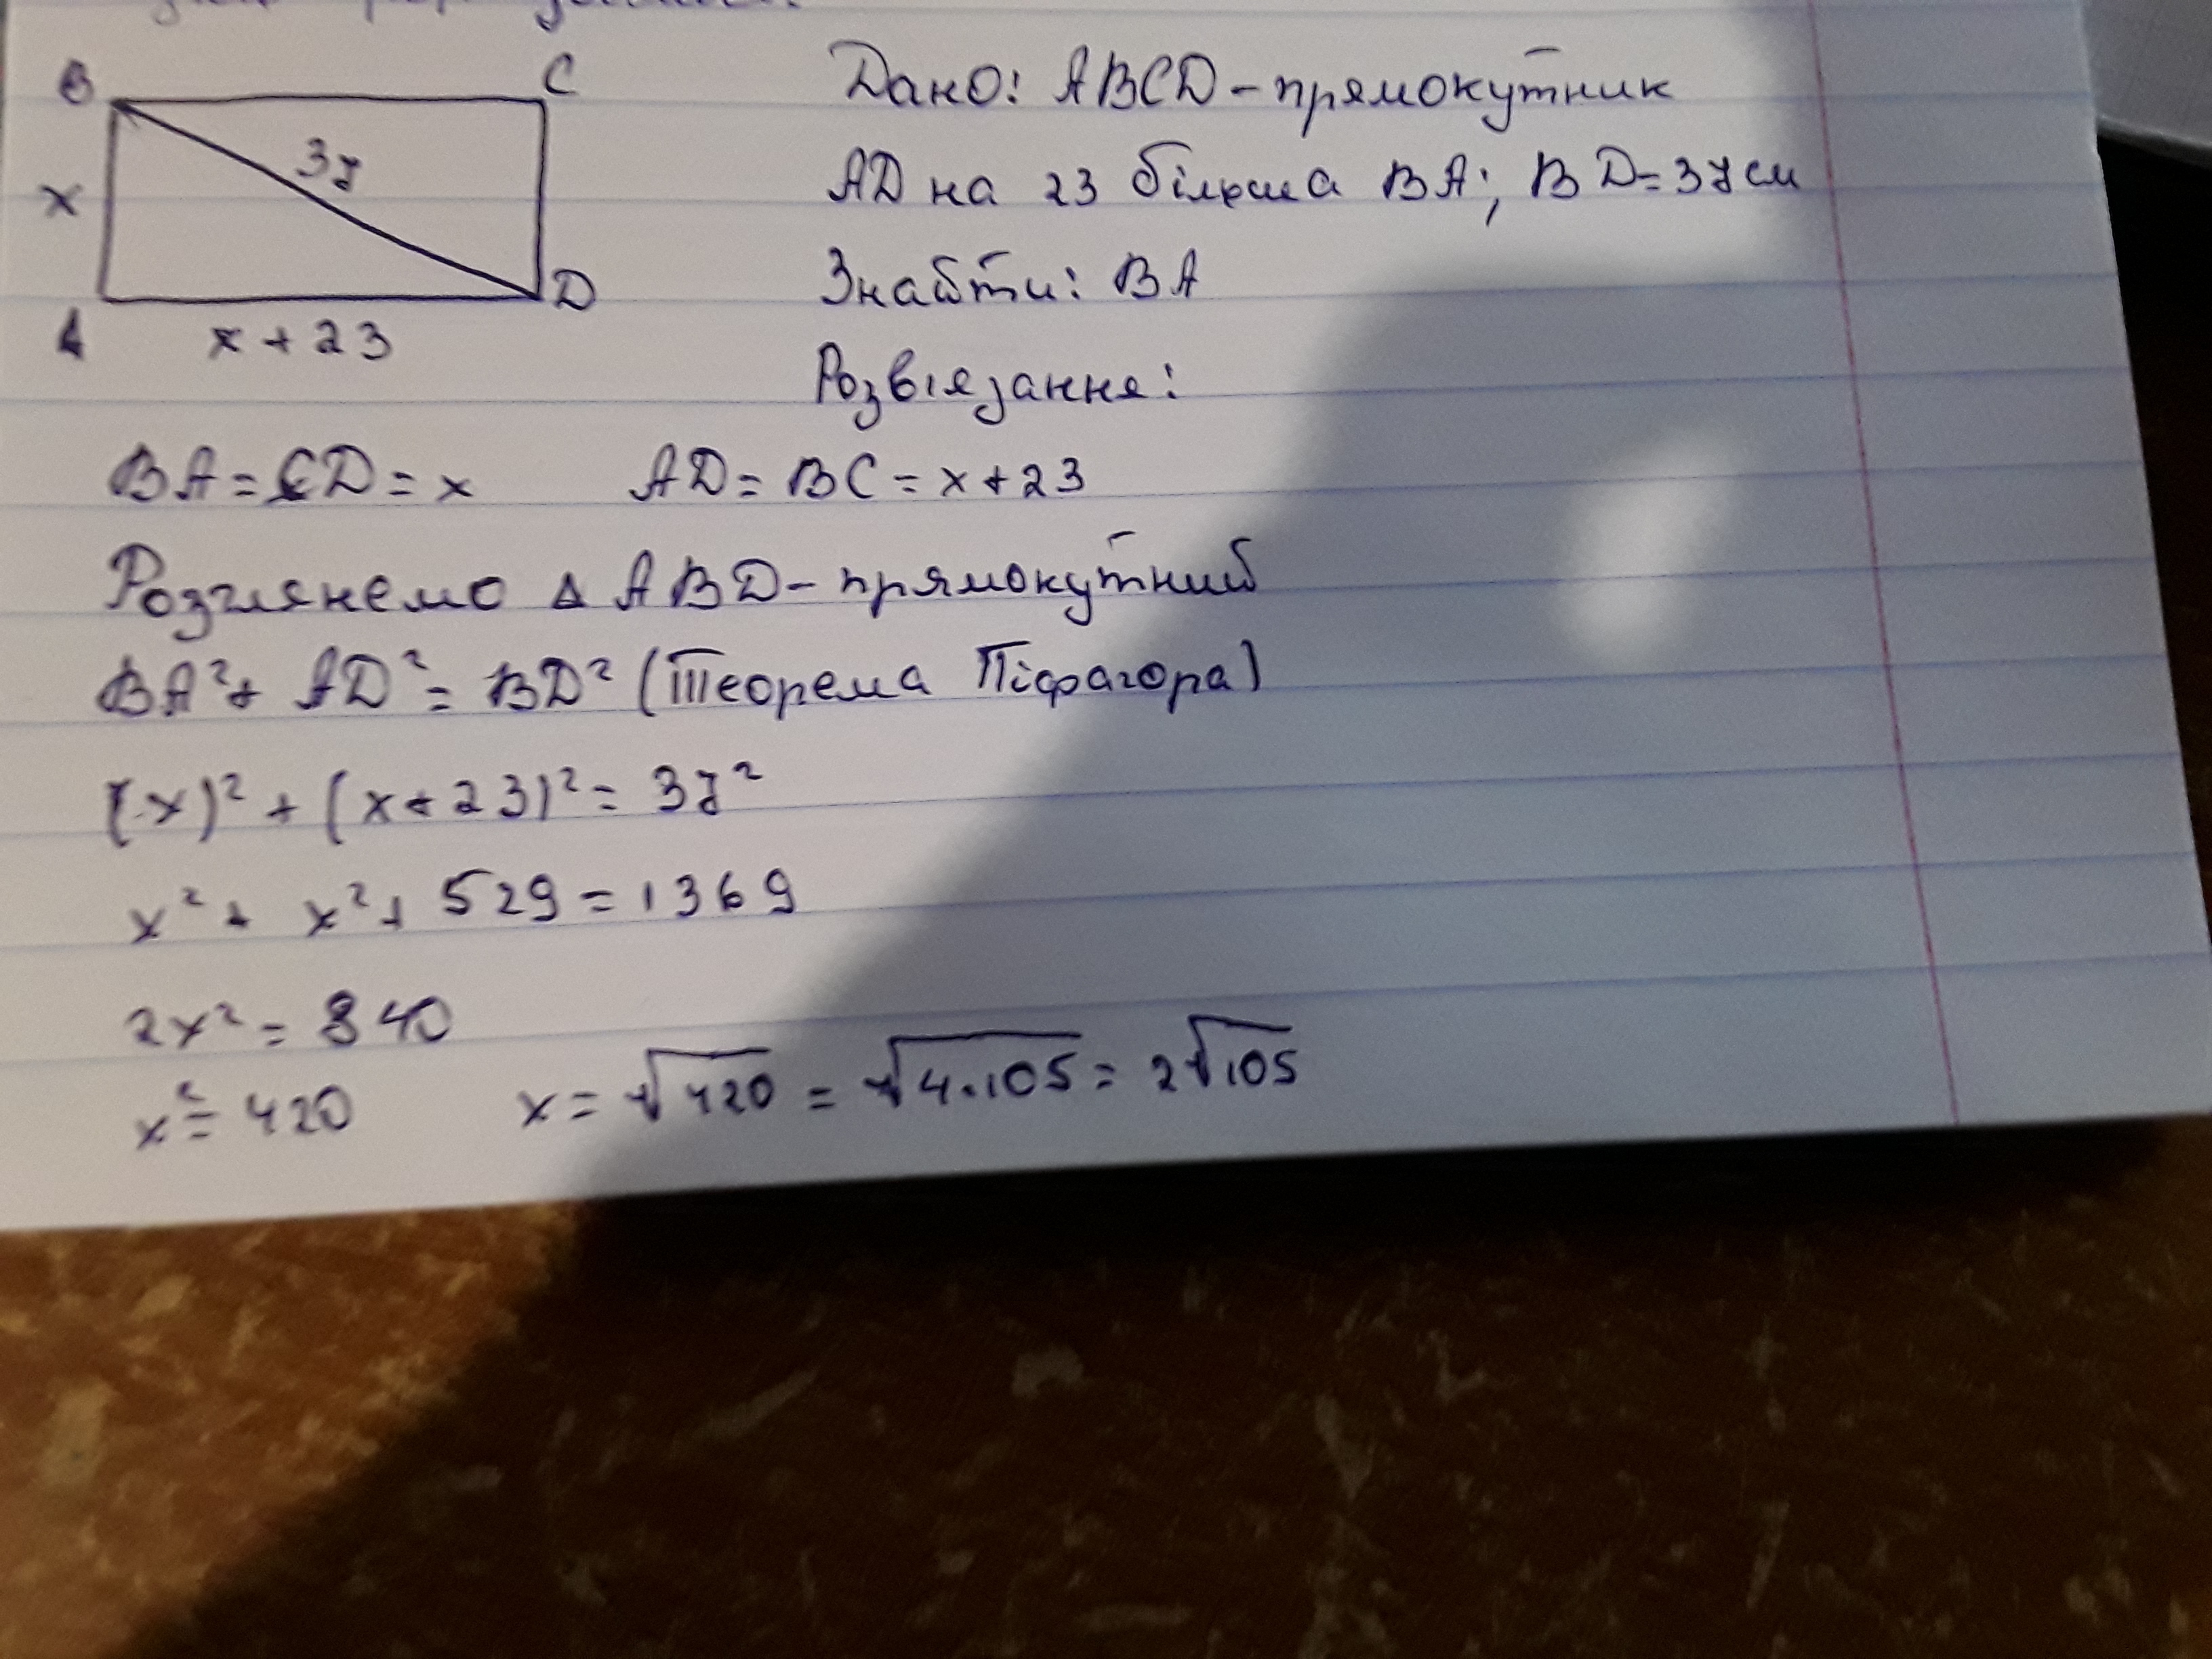 B C
37
x
A D
x + 23
Дано: ABCD - прямокутник
AD на 23 більша BA; BD = 37 см
Знайти: BA
Розвіязання:
BA = CD = x AD = BC = x + 23
Розглянемо △ ABD - прямокутний
BA² + AD² = BD² (Теорема Піфагора)
(x)² + (x + 23)² = 37²
x² + x² + 529 = 1369
2x² = 840
x² = 420 x = √420 = √4·105 = 2√105